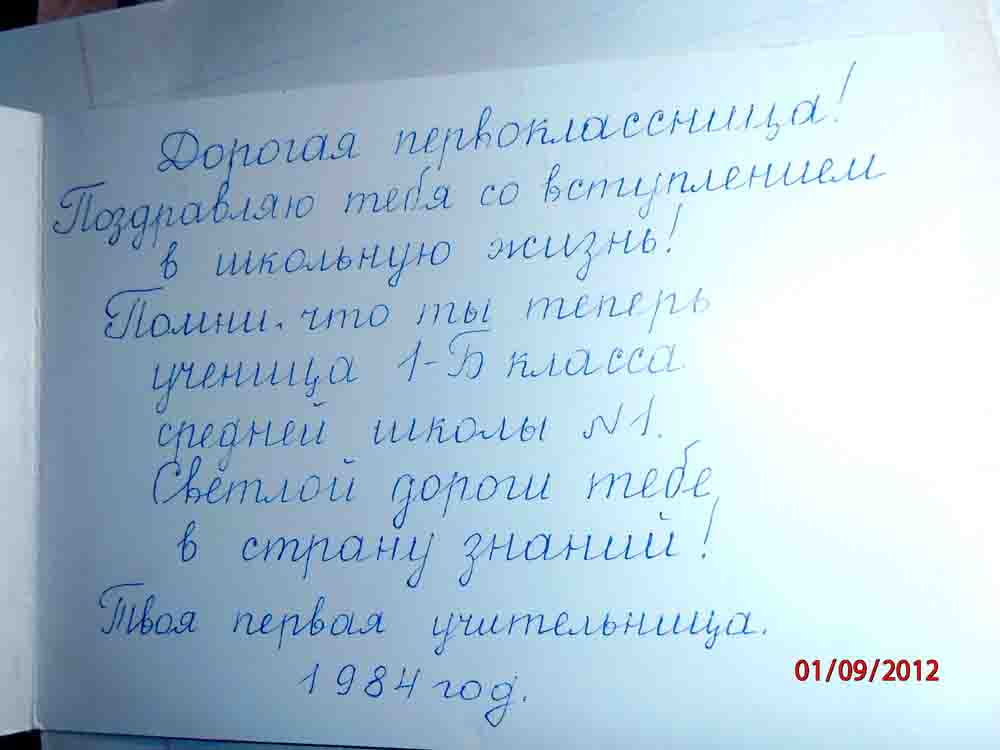 Дорогая первоклассница!
Поздравляю тебя со вступлением
в школьную жизнь!
Помни, что ты теперь
ученица 1-Б класса
средней школы №1.
Светлой дороги тебе
в страну знаний!
Твоя первая учительница.
1984 год.
01/09/2012